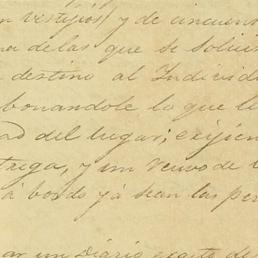 n vestijios) y de cincuen
na de las que se solici
destino al Individ
bonandole lo que
ad del lugar; exijien
trega, y un reuvo de
á bordo yá sean las per
ar un Diario exacto de